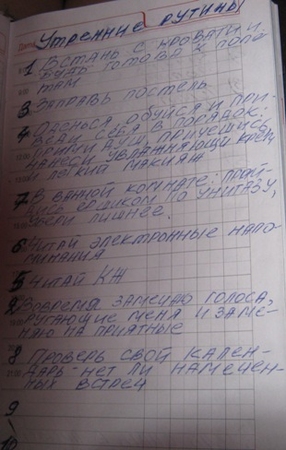 Утренние рутины
1 Встань с кровати и
будь готова к полётам
3 Заправь постель
4 Оденься, обуйся и при-
веди себя в порядок:
прими душ, причешись,
нанеси увлажняющий крем
и легкий макияж
7 В ванной комнате: пройдись ёршиком по унитазу,
убери лишнее.
6 Читай электронные напо-
минания
5 Читай КЖ
2 Вовремя замечаю голоса,
ругающие меня и заме-
няю на приятные
8 Проверь свой кален-
дарь - нет ли намечен-
ных встреч
9
10